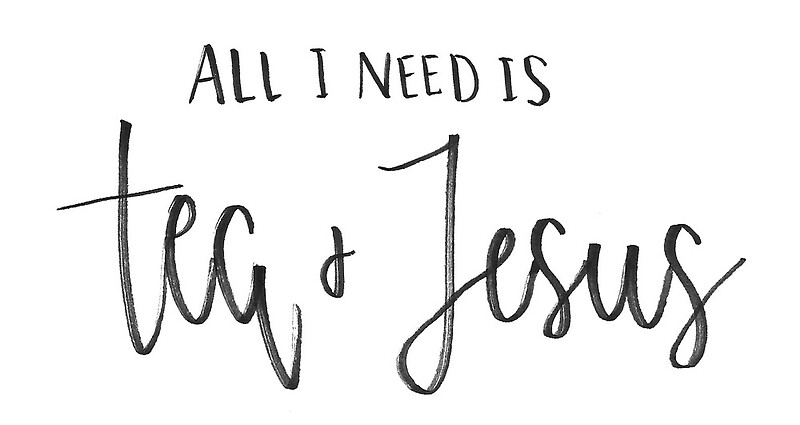 ALL I NEED IS
tea & Jesus